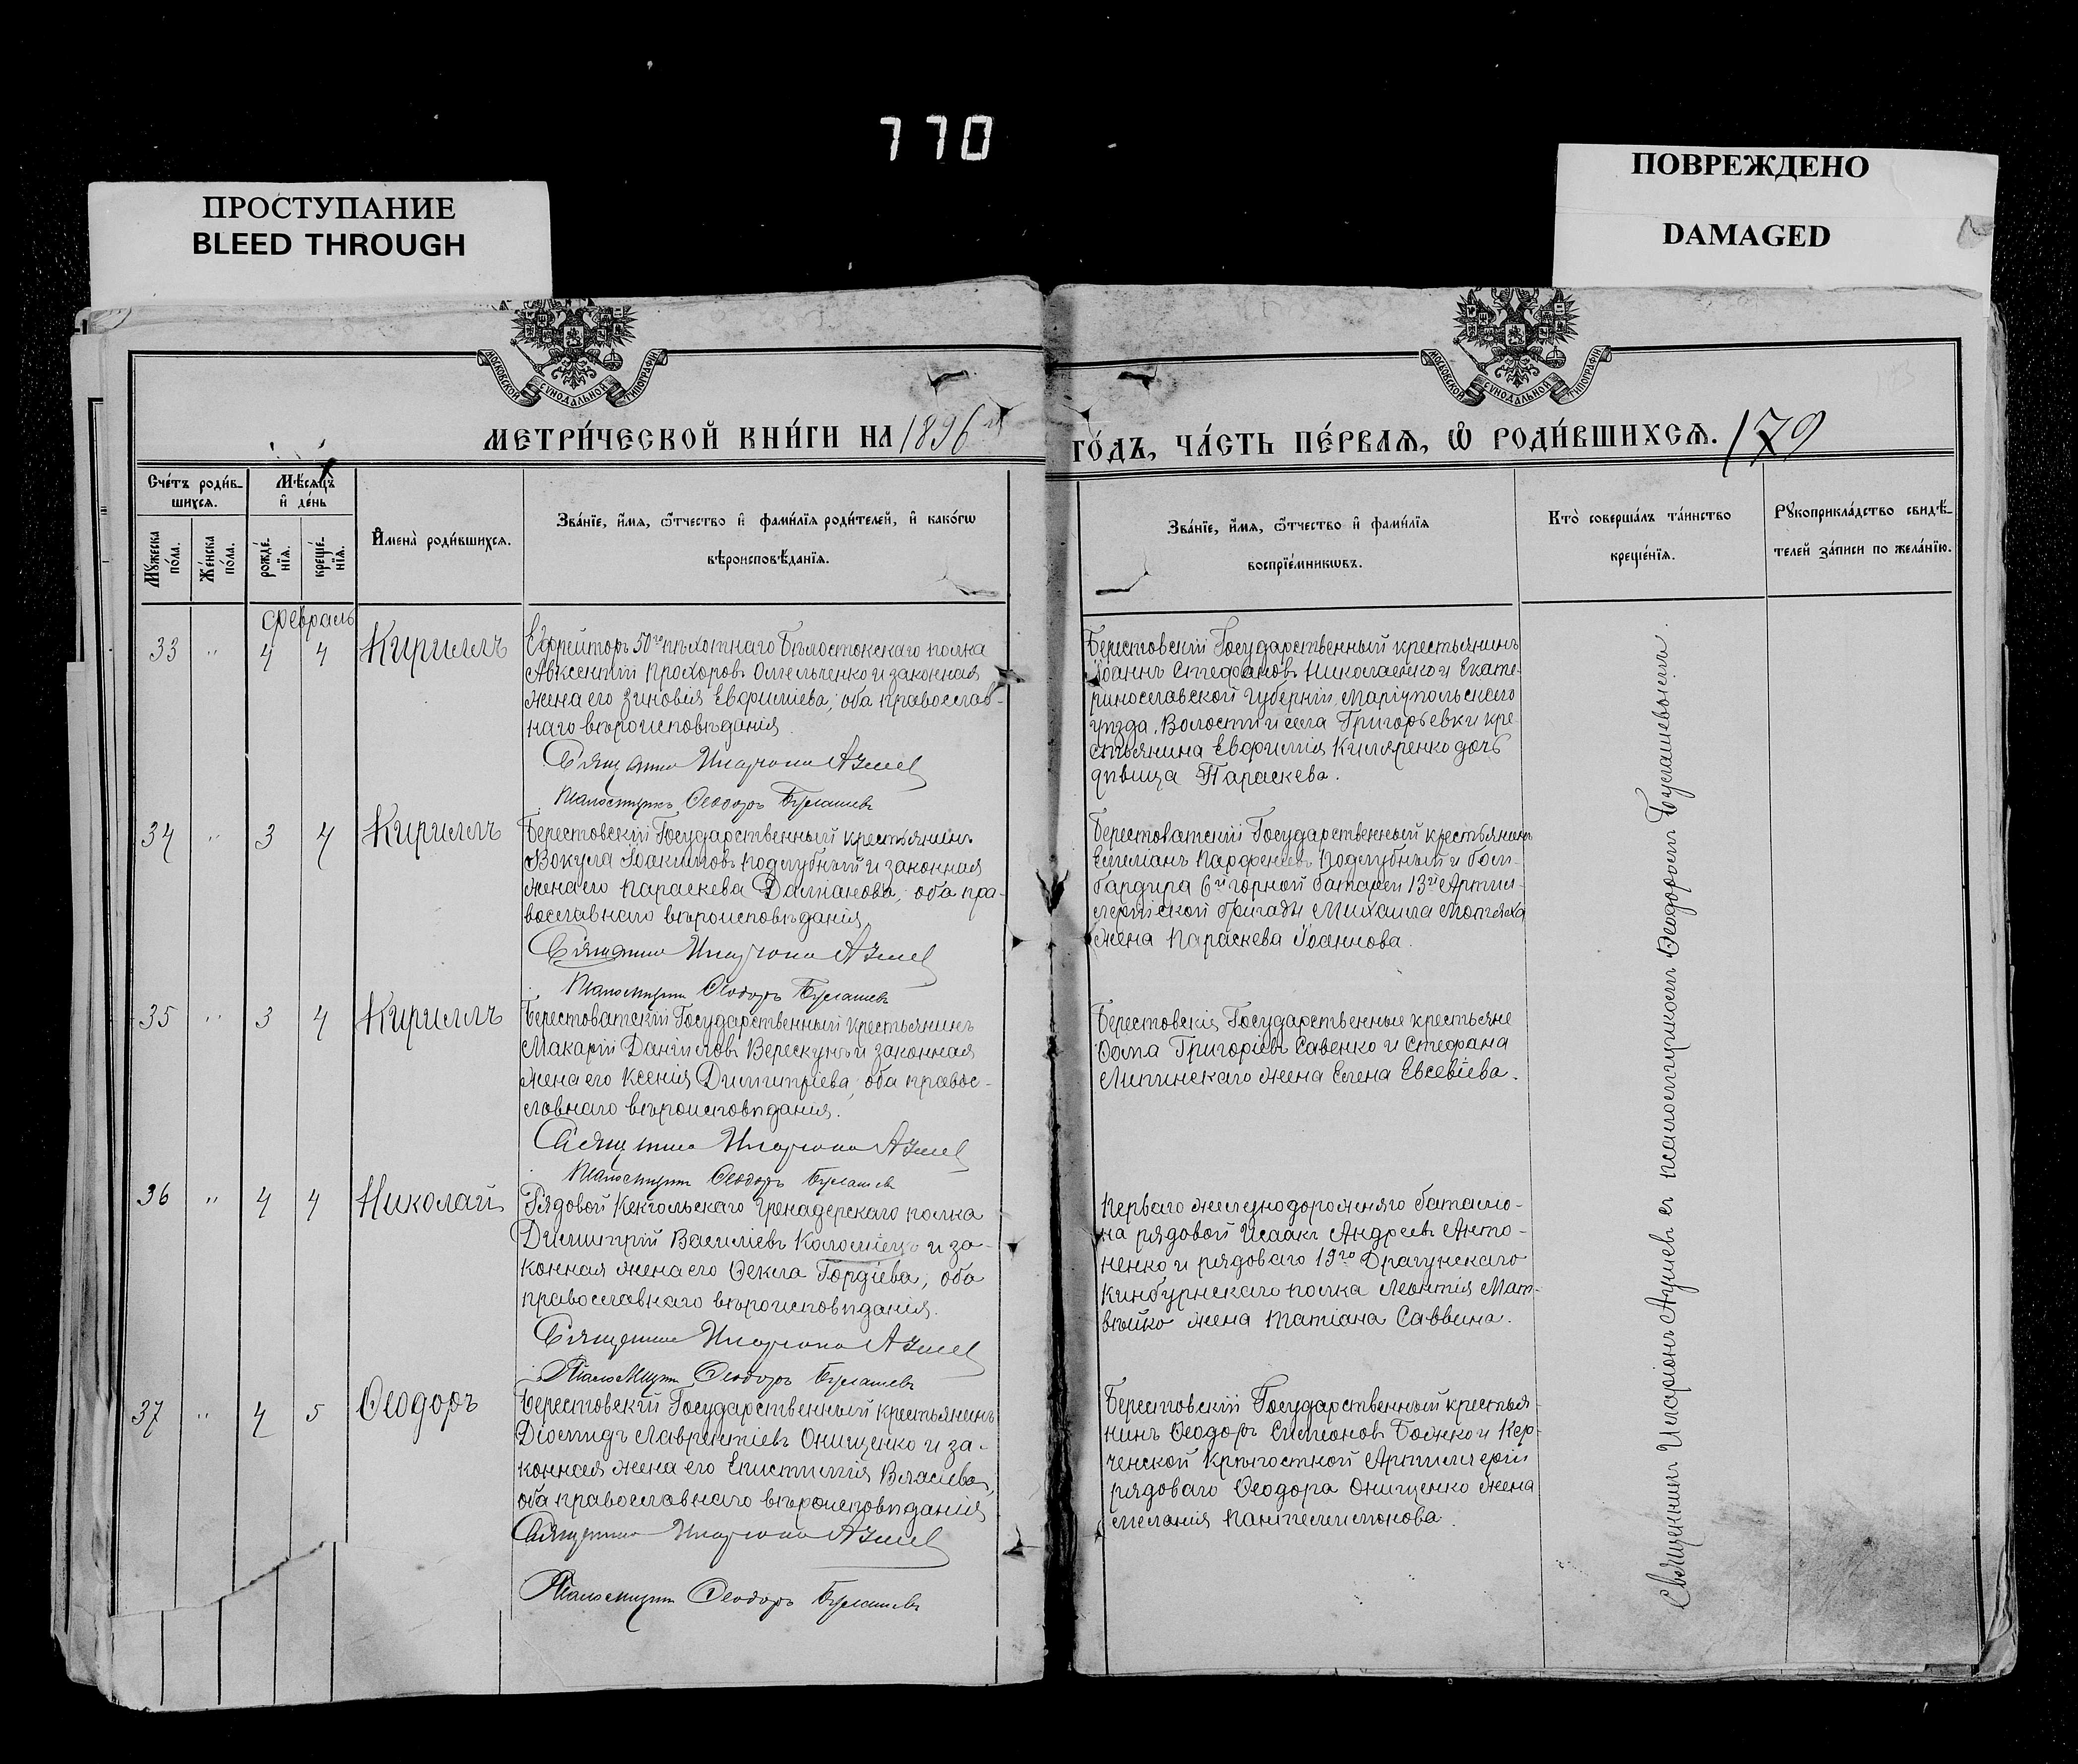 770
ПРОСТУПАНИЕ
BLEED THROUGH
ПОВРЕЖДЕНО
DAMAGED
МОСКОВСКОЙ СУНОДАЛЬНОЙ ТИПОГРАФІИ
МОСКОВСКОЙ СУНОДАЛЬНОЙ ТИПОГРАФІИ
МЕТРИ́ЧЕСКОЙ КНИ́ГИ НА 1896 й ГО́ДЪ, ЧА́СТЬ ПЕ́РВАЯ, Ѽ РОДИ́ВШИХСЯ. 179
Сче́тъ роди́в-
шихся.
Мѣ́сяцъ
и҆ де́нь
Мꙋ́жеска
по́ла.
Же́нска
по́ла.
рожде́-
нїя.
креще́-
нїя.
И҆мена̀ роди́вшихся.
Зва́нїе, и҆́мя, ѻ҆́тчество и҆ фами́лїя роди́телей, и҆ како́гѡ
вѣроисповѣ́данїя.
Зва́нїе, и҆́мя, ѻ҆́тчество и҆ фами́лїя
воспрїе́мникѡвъ.
Кто̀ соверша́лъ та́инство
креще́нїя.
Рꙋкоприкла́дство свидѣ́-
телей за́писи по жела́нїю.
Февраль
33 " 4 4 Кириллъ
Ефрейторъ 50го пѣхотнаго Бѣлостокскаго полка
Авксентій Прохоровъ Омельченко и законная
жена его Зиновія Евфиміева; оба православ-
наго вѣроисповѣданія.
Священникъ Иларіонъ Азиевъ
Псаломщикъ Ѳеодоръ Буглашевъ
Берестовскій Государственный крестьянинъ
Іоаннъ Стефановъ Николаенко и Екате-
ринославской губерніи, Маріупольскаго
уѣзда, Волости и села Григорьевки кре-
стьянина Евфимія Киляренко дочь
дѣвица Параскева.
34 " 3 4 Кириллъ
Берестовскій Государственный крестьянинъ
Вокула Іоакимовъ Поддубный и законная
жена его Параскева Даміанова; оба пра-
вославнаго вѣроисповѣданія,
Священникъ Иларіонъ Азиевъ
Псаломщикъ Ѳеодоръ Буглашевъ
Берестоватскій Государственный крестьянинъ
Емеліанъ Парфеніевъ Поддубный и бом-
бардира 6й горной батареи 13й Артил-
лерійской бригады Михаила
жена Параскева Іоаннова.
35 " 3 4 Кириллъ
Берестоватскій Государственный крестьянинъ
Макарій Даніиловъ Верескунъ и законная
жена его Ксенія Димитріева; оба правос-
лавнаго вѣроисповѣданія.
Священникъ Иларіонъ Азиевъ
Псаломщикъ Ѳеодоръ Буглашевъ
Берестовскіе Государственные крестьяне
Ѳома Григоріевъ Савенко и Стефана
Липинскаго жена Елена Евсевіева.
36 " 4 4 Николай
Рядовой Кексгольскаго Гренадерскаго полка
Димитрій Василіевъ Коломіецъ и за-
конная жена его Ѳекла Гордіева; оба
православнаго вѣроисповѣданія.
Священникъ Иларіонъ Азиевъ
Псаломщикъ Ѳеодоръ Буглашевъ
Перваго железнодорожняго баталіо-
на рядовой Исаакъ Андреевъ Анто-
ненко и рядоваго 19го Драгунскаго
Кинбурнскаго полка Леонтія Мат-
вѣйко жена Татіана Саввина.
37 " 4 5 Ѳеодоръ
Берестовскій Государственный крестьянинъ
Діомидъ Лаврентіевъ Онищенко и за-
конная жена его Епистимія Власіева,
оба православнаго вѣроисповѣданія
Священникъ Иларіонъ Азиевъ
Псаломщикъ Ѳеодоръ Буглашевъ
Берестовскій Государственный крестья-
нинъ Ѳеодоръ Симеоновъ Божко и Кер-
ченской Крѣпостной Артиллеріи
рядоваго Ѳеодора Онищенко жена
Меланія Пантелеимонова.
Священникъ Иларіонъ Азиевъ съ псаломщикомъ Ѳеодоромъ Буглашевымъ.